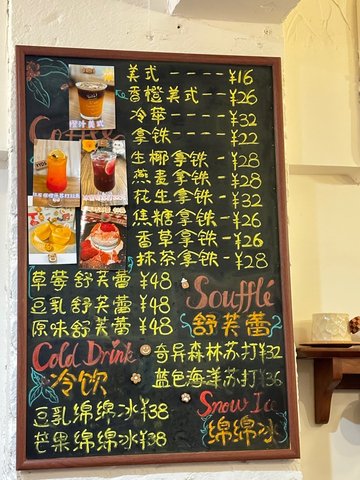 Coffee
美式----¥16
香橙美式--¥26
冷萃----¥32
拿铁----¥22
生椰拿铁-¥28
燕麦拿铁-¥28
花生拿铁-¥32
焦糖拿铁-¥26
香草拿铁-¥26
抹茶拿铁-¥28
橙汁美式
Soufflé
舒芙蕾
草莓舒芙蕾¥48
豆乳舒芙蕾¥48
原味舒芙蕾¥48
Cold Drink
冷饮
奇异森林苏打¥32
蓝色海洋苏打¥36
Snow Ice
绵绵冰
豆乳绵绵冰¥38
芒果绵绵冰¥38